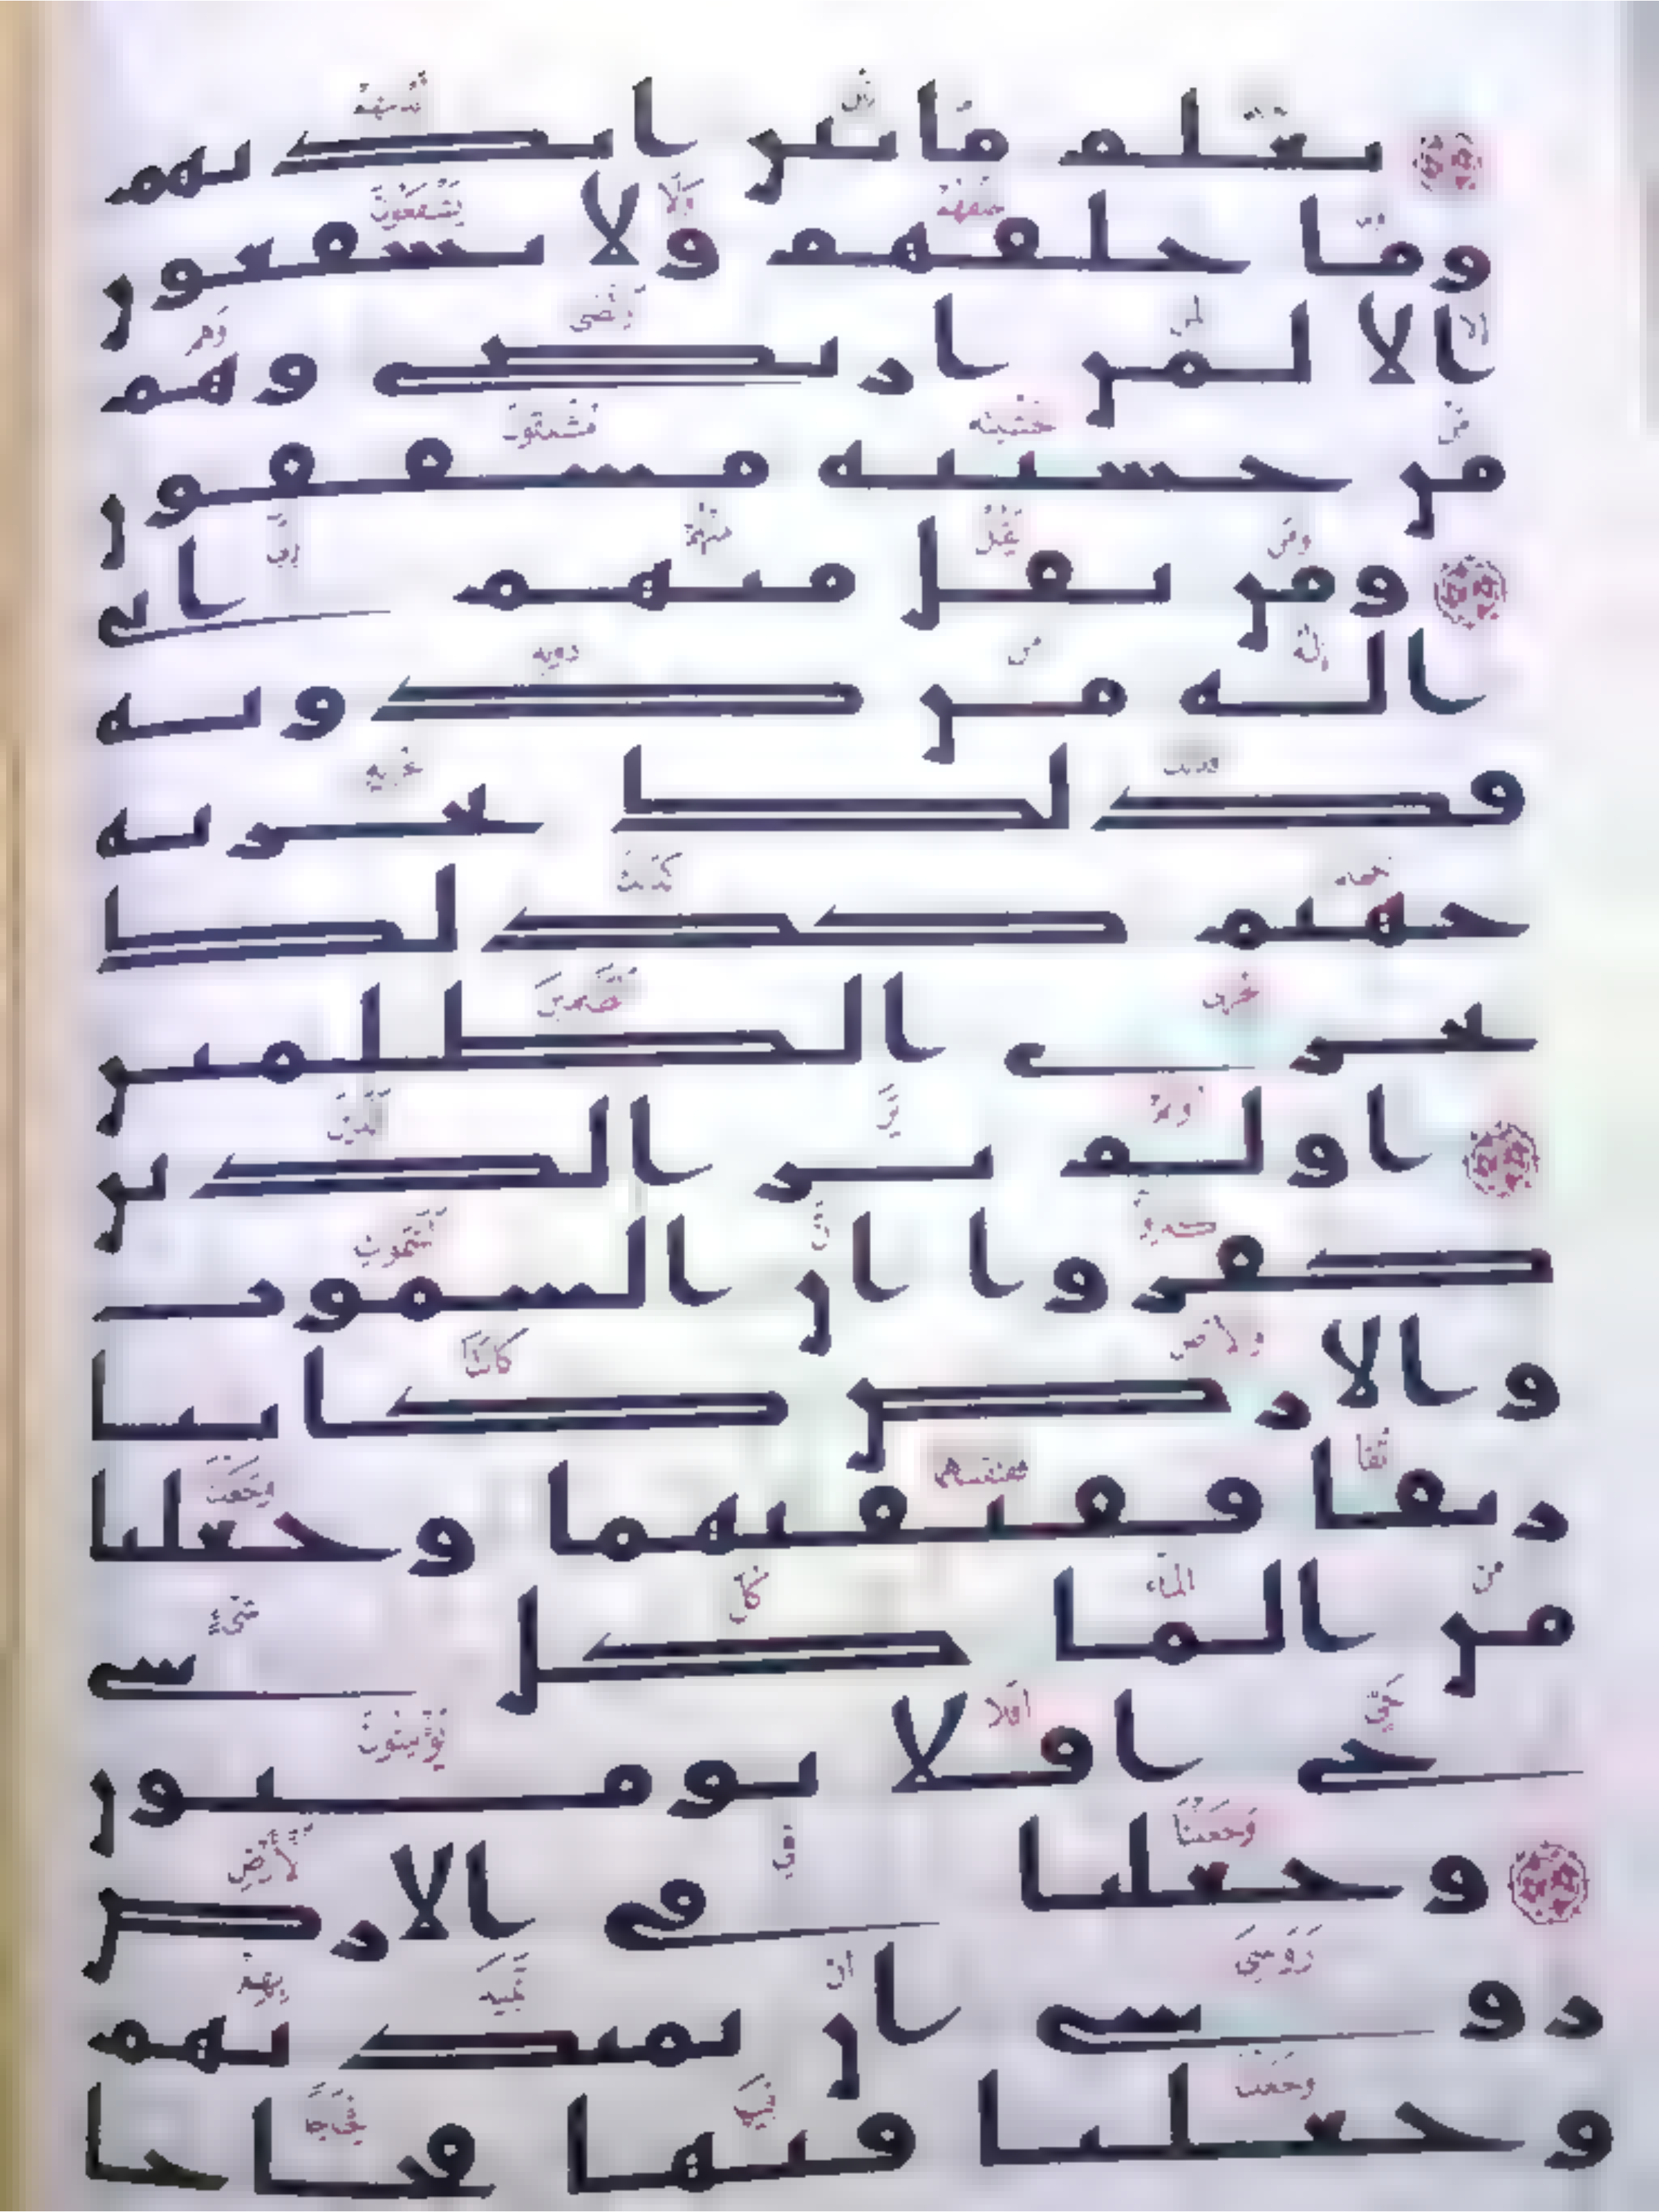 يعلم ما بين ايديهم
وما خلفهم ولا يشفعون
الا لمن ارتضى وهم
من خشيته مشفقون
ومن يقل منهم اني
اله من دونه
فذلك نجزيه
جهنم كذلك
نجزي الظلمين
اولم ير الذين
كفروا ان السموت
والارض كانتا
رتقا ففتقنهما وجعلنا
من الما كل شي
حي افلا يومنون
وجعلنا في الارض
روسي ان تميد بهم
وجعلنا فيها فجاجا